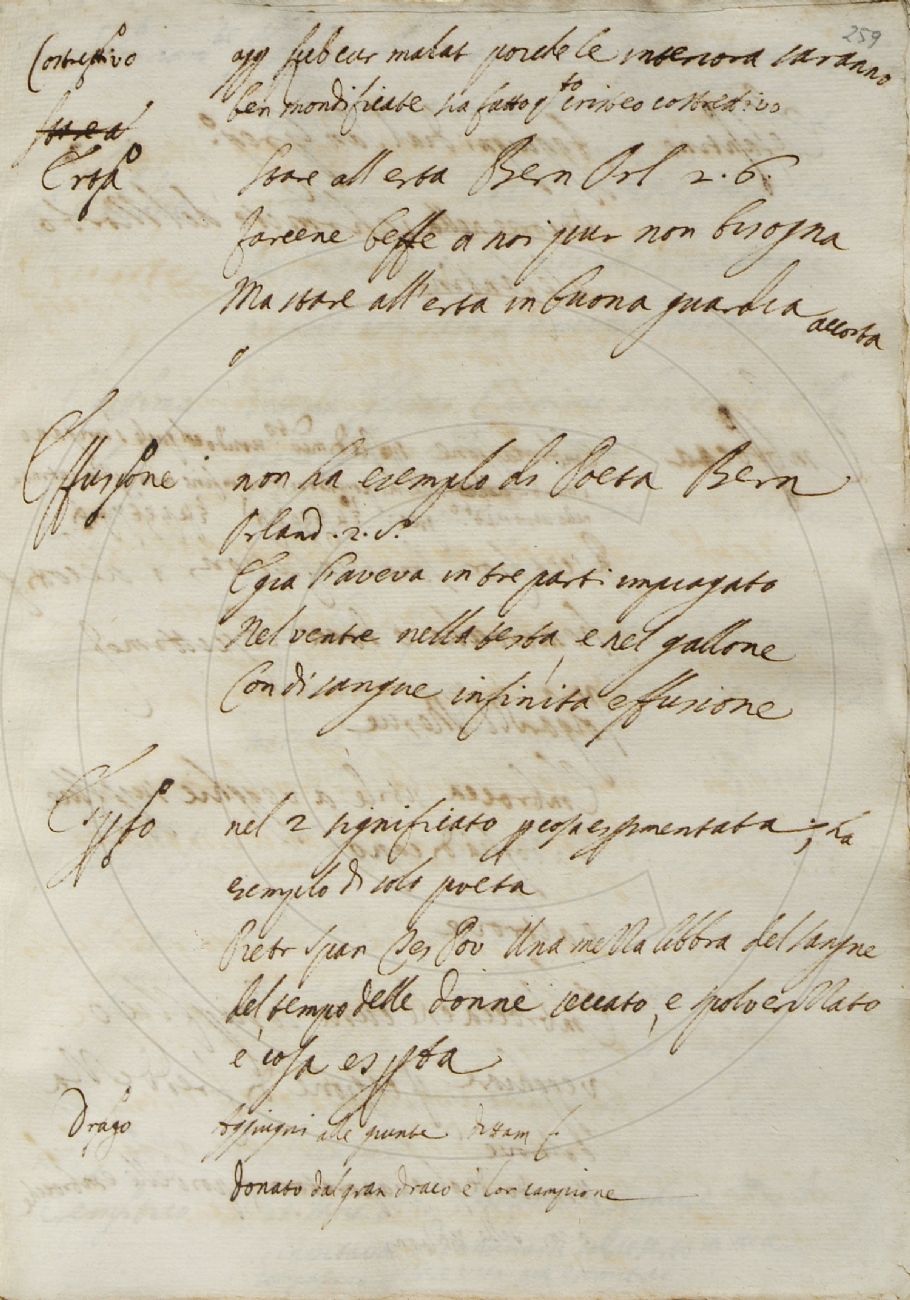 259
Costrettivo agg lib cur malat poiche le interiora saranno
ben mondificate sia fatto q.to cristeo costrettivo
Erta stare all erta Bern Orl 2. 6.
farcene beffe a noi pur non bisogna
Ma stare all'erta in buona guardia accorta
Effusione non ha esempio di Poeta Bern
Orland. 2. 5.
E gia l'aveva in tre parti impiagato
Nel ventre nella testa, e nel gallone
Con di sangue infinita effusione
nel 2 significato p cosa esprimentata; ha
esempio di solo poeta
Pietr Span Tes Pov Una mezza libbra del sangue
del tempo delle donne seccato, e spolverizzato
e' cosa espta
Drago Aggiugni alle giunte Dittam
Donato dal gran draco e' lor campione